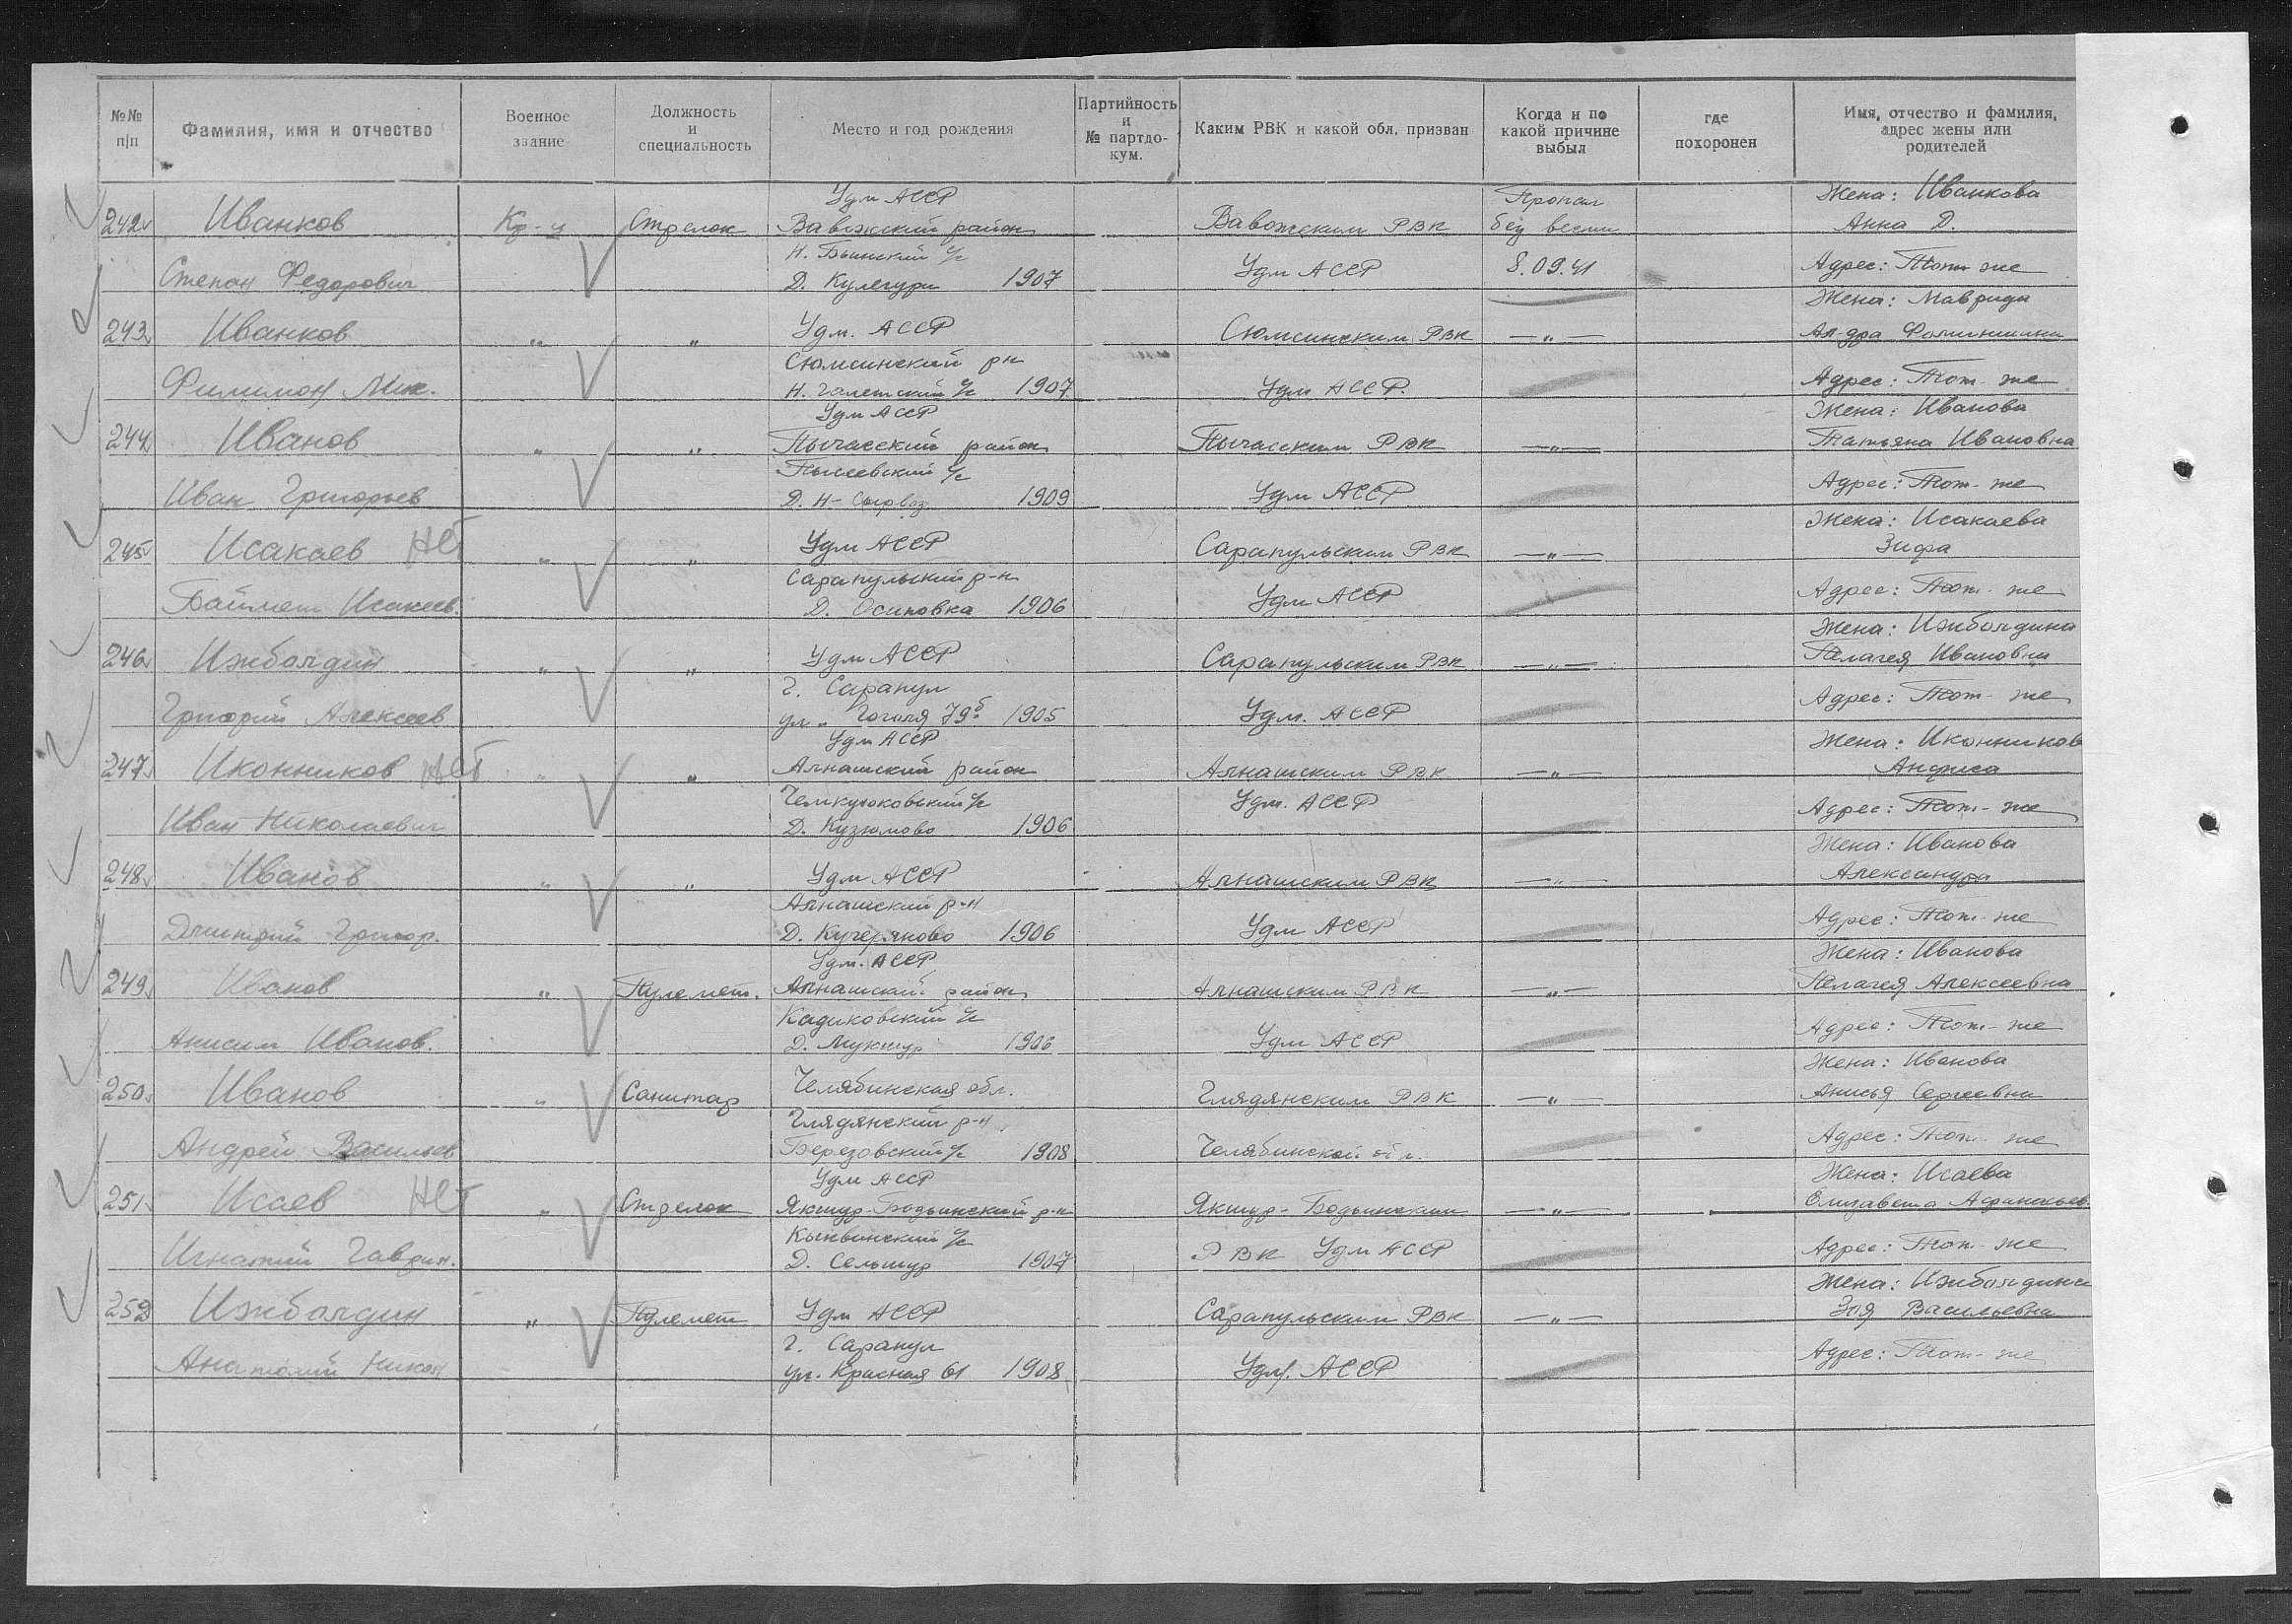 №№ п/п
Фамилия, имя и отчество
Военное звание
Должность и специальность
Место и год рождения
Партийность и № партдокум.
Каким РВК и какой обл. призван
Когда и по какой причине выбыл
где похоронен
Имя, отчество и фамилия, адрес жены или родителей
Удм АССР Пропал Жена: Иванкова
242 Иванков Кр-ц Стрелок Вавожский район Вавожским РВК без вести Анна Д.
Степан Федорович Н. Бьинский с/с Удм АССР 8.09.41 Адрес: Тот же
Д. Кулегури 1907
Жена:
243 Иванков " " Удм. АССР Сюмсинским РВК —"— Ал-дра
Сюмсинский рн
Филимон Мих. Н. с/с 1907 Удм АССР. Адрес: Тот-же
Удм АССР Жена: Иванова
244 Иванов " " Пычасский район Пычасским РВК —"— Татьяна Ивановна
с/с
Иван Григорьев Д. Н- 1909 Удм АССР Адрес: Тот-же
Жена: Исакаева
245 Исакаев НЕТ " " Удм АССР Сарапульским РВК —"— Зифа
Сарапульский р-н
Баймет Исакаев. Д. Осиповка 1906 Удм АССР Адрес: Тот-же
Жена: Ижболдина
246 Ижболдин " " Удм АССР Сарапульским РВК —"— Пелагея Ивановна
г. Сарапул
Григорий Алексеев ул. Гоголя 79б 1905 Удм. АССР Адрес: Тот-же
Удм АССР Жена: Иконников
247 Иконников НЕТ " " Алнашский район Алнашским РВК —"— Анфиса
с/с
Иван Николаевич Д. Кузюмово 1906 Удм. АССР Адрес: Тот-же
Жена: Иванова
248 Иванов " " Удм АССР Алнашским РВК —"— Александра
Алнашский р-н
Дмитрий Григор. Д. Кучеряново 1906 Удм АССР Адрес: Тот-же
Удм. АССР Жена: Иванова
249 Иванов " Пулемет. Алнашский район Алнашским РВК —"— Пелагея Алексеевна
Кадиковский с/с
Анисим Иванов. Д. Мукшур 1906 Удм АССР Адрес: Тот-же
Жена: Иванова
250 Иванов " Санитар Челябинская обл. Глядянским РВК —"— Анисья Сергеевна
Глядянский р-н.
Андрей Васильев Березовский с/с 1908 Челябинской обл. Адрес: Тот-же
Удм АССР Жена: Исаева
251 Исаев НЕТ " Стрелок Якшур-Бодьинский р-н Якшур-Бодьинским —"— Елизавета Афанасьев.
с/с
Игнатий Гаврил. Д. Сельшур 1907 РВК Удм АССР Адрес: Тот-же
Жена: Ижболдина
252 Ижболдин " Пулемет Удм АССР Сарапульским РВК —"— Зоя Васильевна
г. Сарапул
Анатолий Никол ул. Красная 61 1908 Удм. АССР Адрес: Тот-же